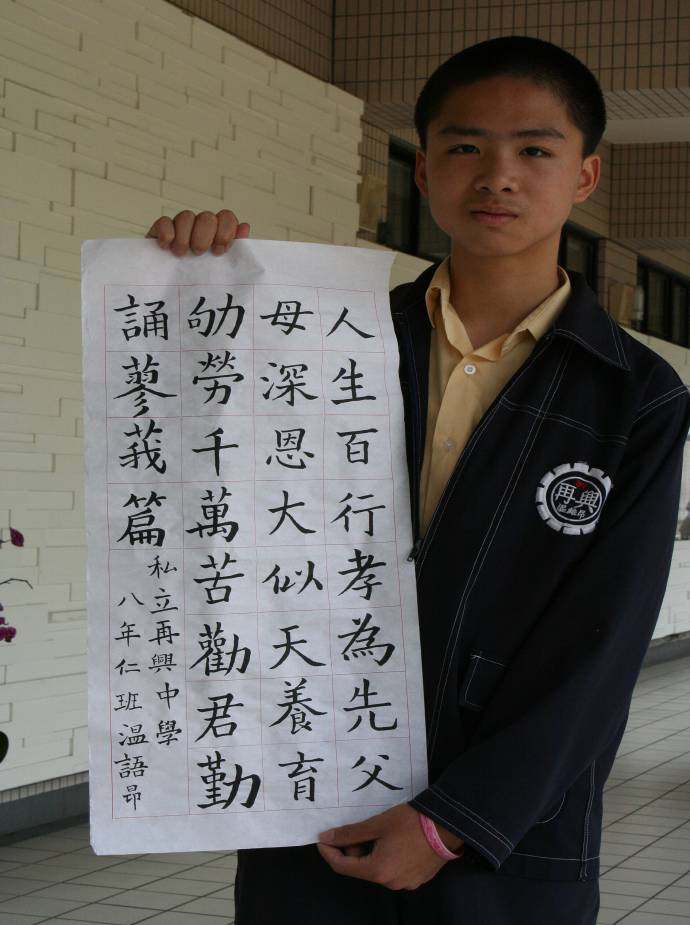 人生百行孝為先父
母深恩大似天養育
劬勞千萬苦勸君勤
誦蓼莪篇
私立再興中學
八年仁班溫語昂
再興